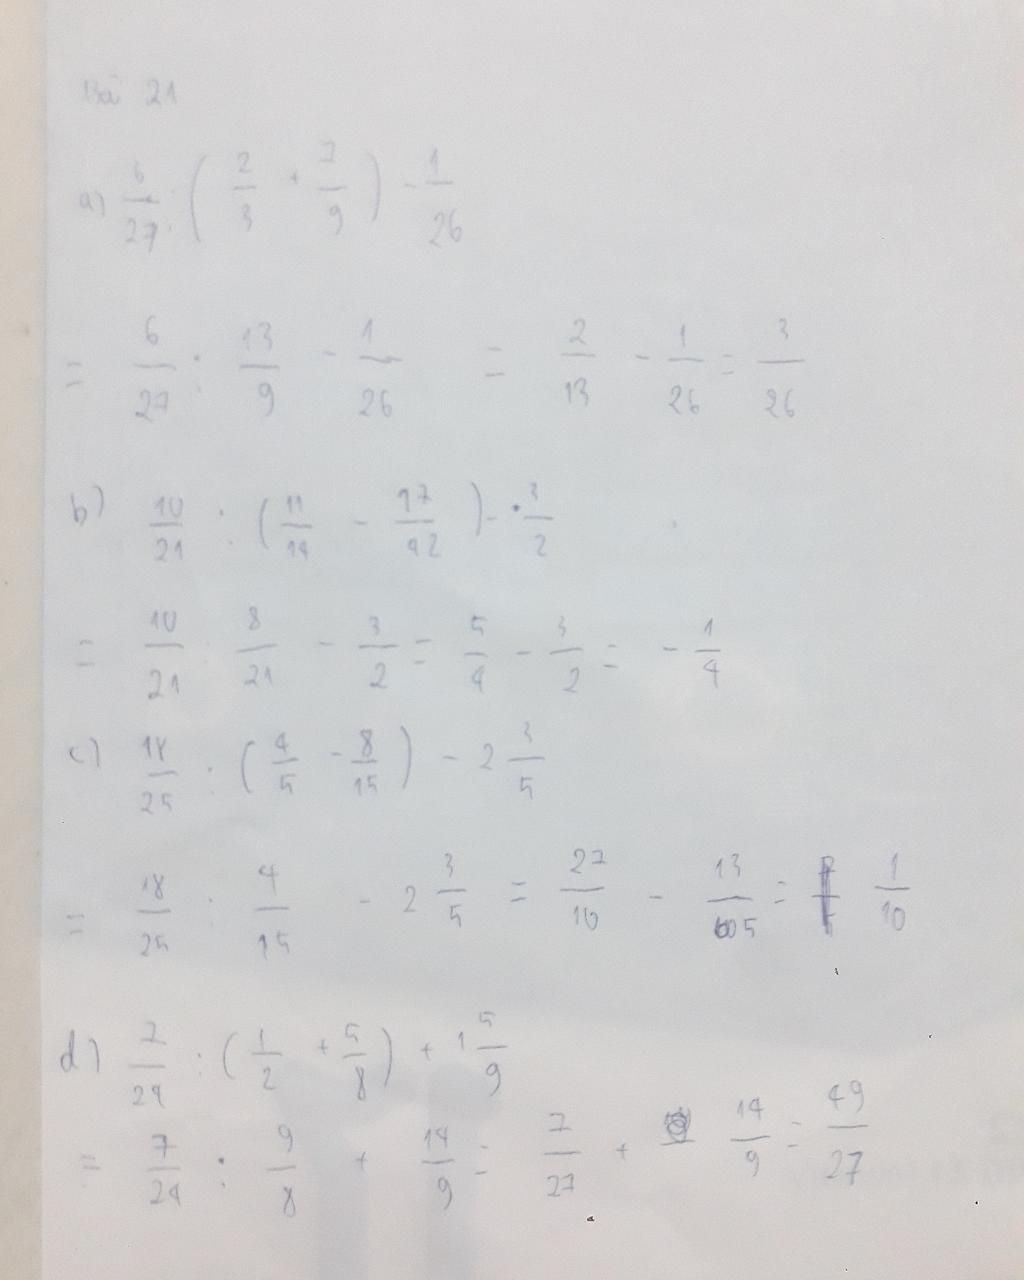 Bài 21
a) 6/27 : ( 2/3 + 7/9 ) - 1/26
= 6/27 : 13/9 - 1/26 = 2/13 - 1/26 = 3/26
b) 10/21 : ( 11/14 - 17/42 ) - 3/2
= 10/21 : 8/21 - 3/2 = 5/4 - 3/2 = - 1/4
c) 18/25 : ( 4/5 - 8/15 ) - 2 3/5
= 18/25 : 4/15 - 2 3/5 = 27/10 - 13/5 = 1/10
d) 7/24 : ( 1/2 + 5/8 ) + 1 5/9
= 7/24 : 9/8 + 14/9 = 7/27 + 14/9 = 49/27